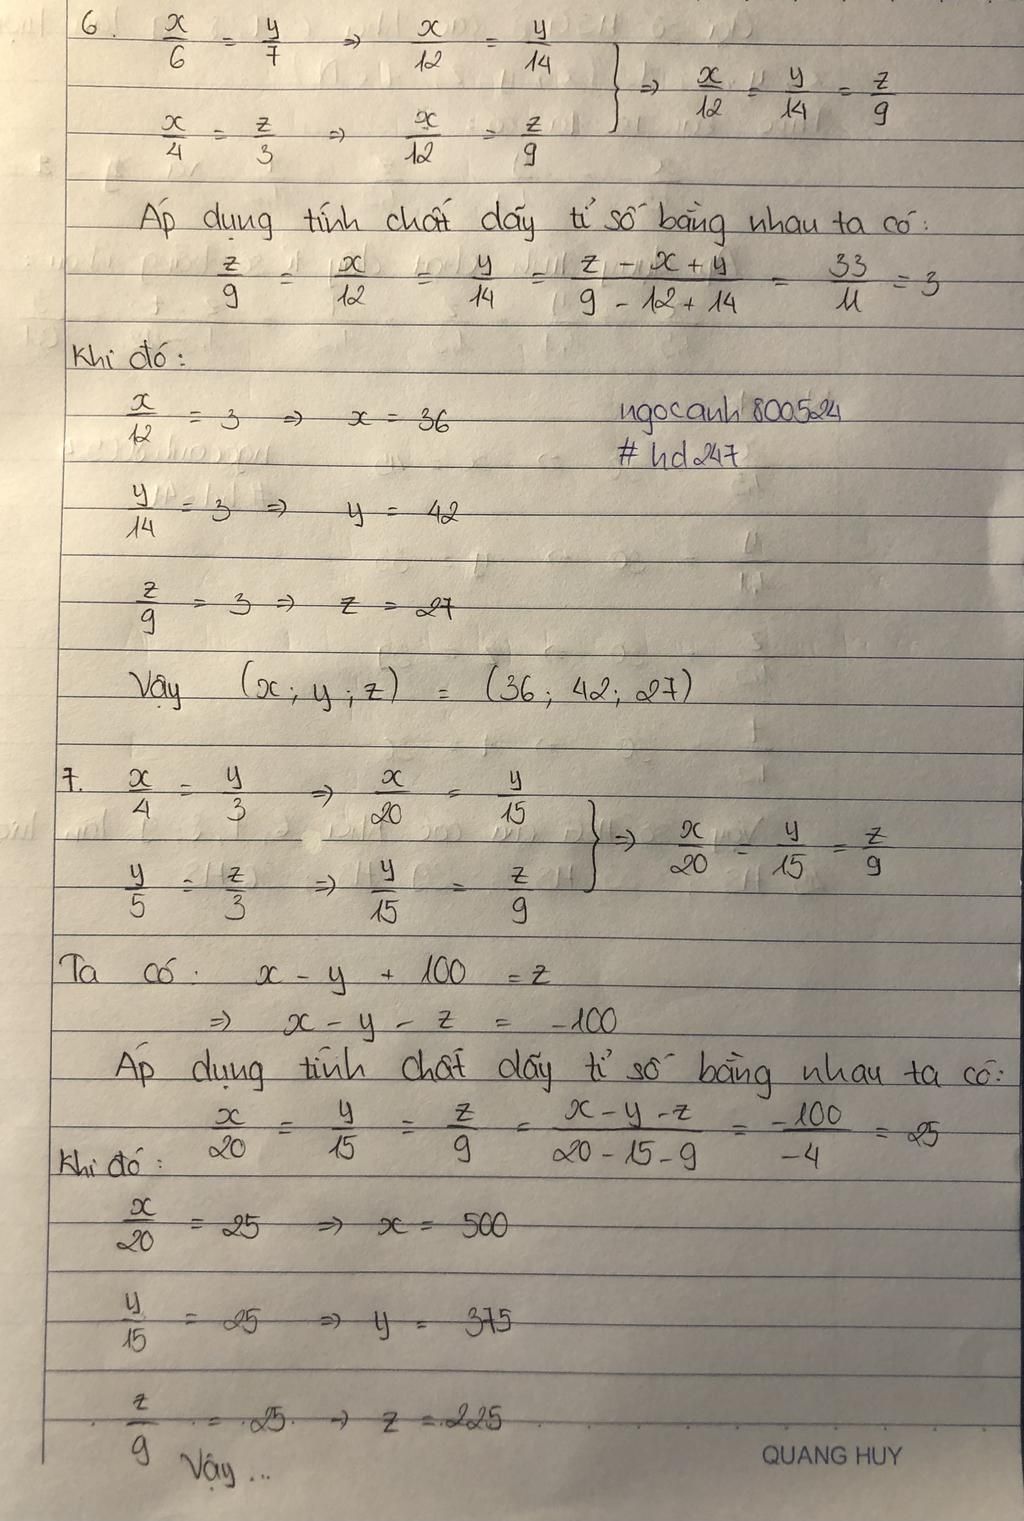 6. x/6 = y/7 => x/12 = y/14
x/4 = z/3 => x/12 = z/9 } => x/12 = y/14 = z/9
Áp dụng tính chất dãy tỉ số bằng nhau ta có:
z/9 = x/12 = y/14 = (z - x + y)/(9 - 12 + 14) = 33/11 = 3
Khi đó:
x/12 = 3 => x = 36
ngocanh800524
#hd247
y/14 = 3 => y = 42
z/9 = 3 => z = 27
Vậy (x; y; z) = (36; 42; 27)
7. x/4 = y/3 => x/20 = y/15
y/5 = z/3 => y/15 = z/9 } => x/20 = y/15 = z/9
Ta có: x - y + 100 = z
=> x - y - z = -100
Áp dụng tính chất dãy tỉ số bằng nhau ta có:
x/20 = y/15 = z/9 = (x - y - z)/(20 - 15 - 9) = -100/-4 = 25
Khi đó:
x/20 = 25 => x = 500
y/15 = 25 => y = 375
z/9 = 25 => z = 225
Vậy ...
QUANG HUY